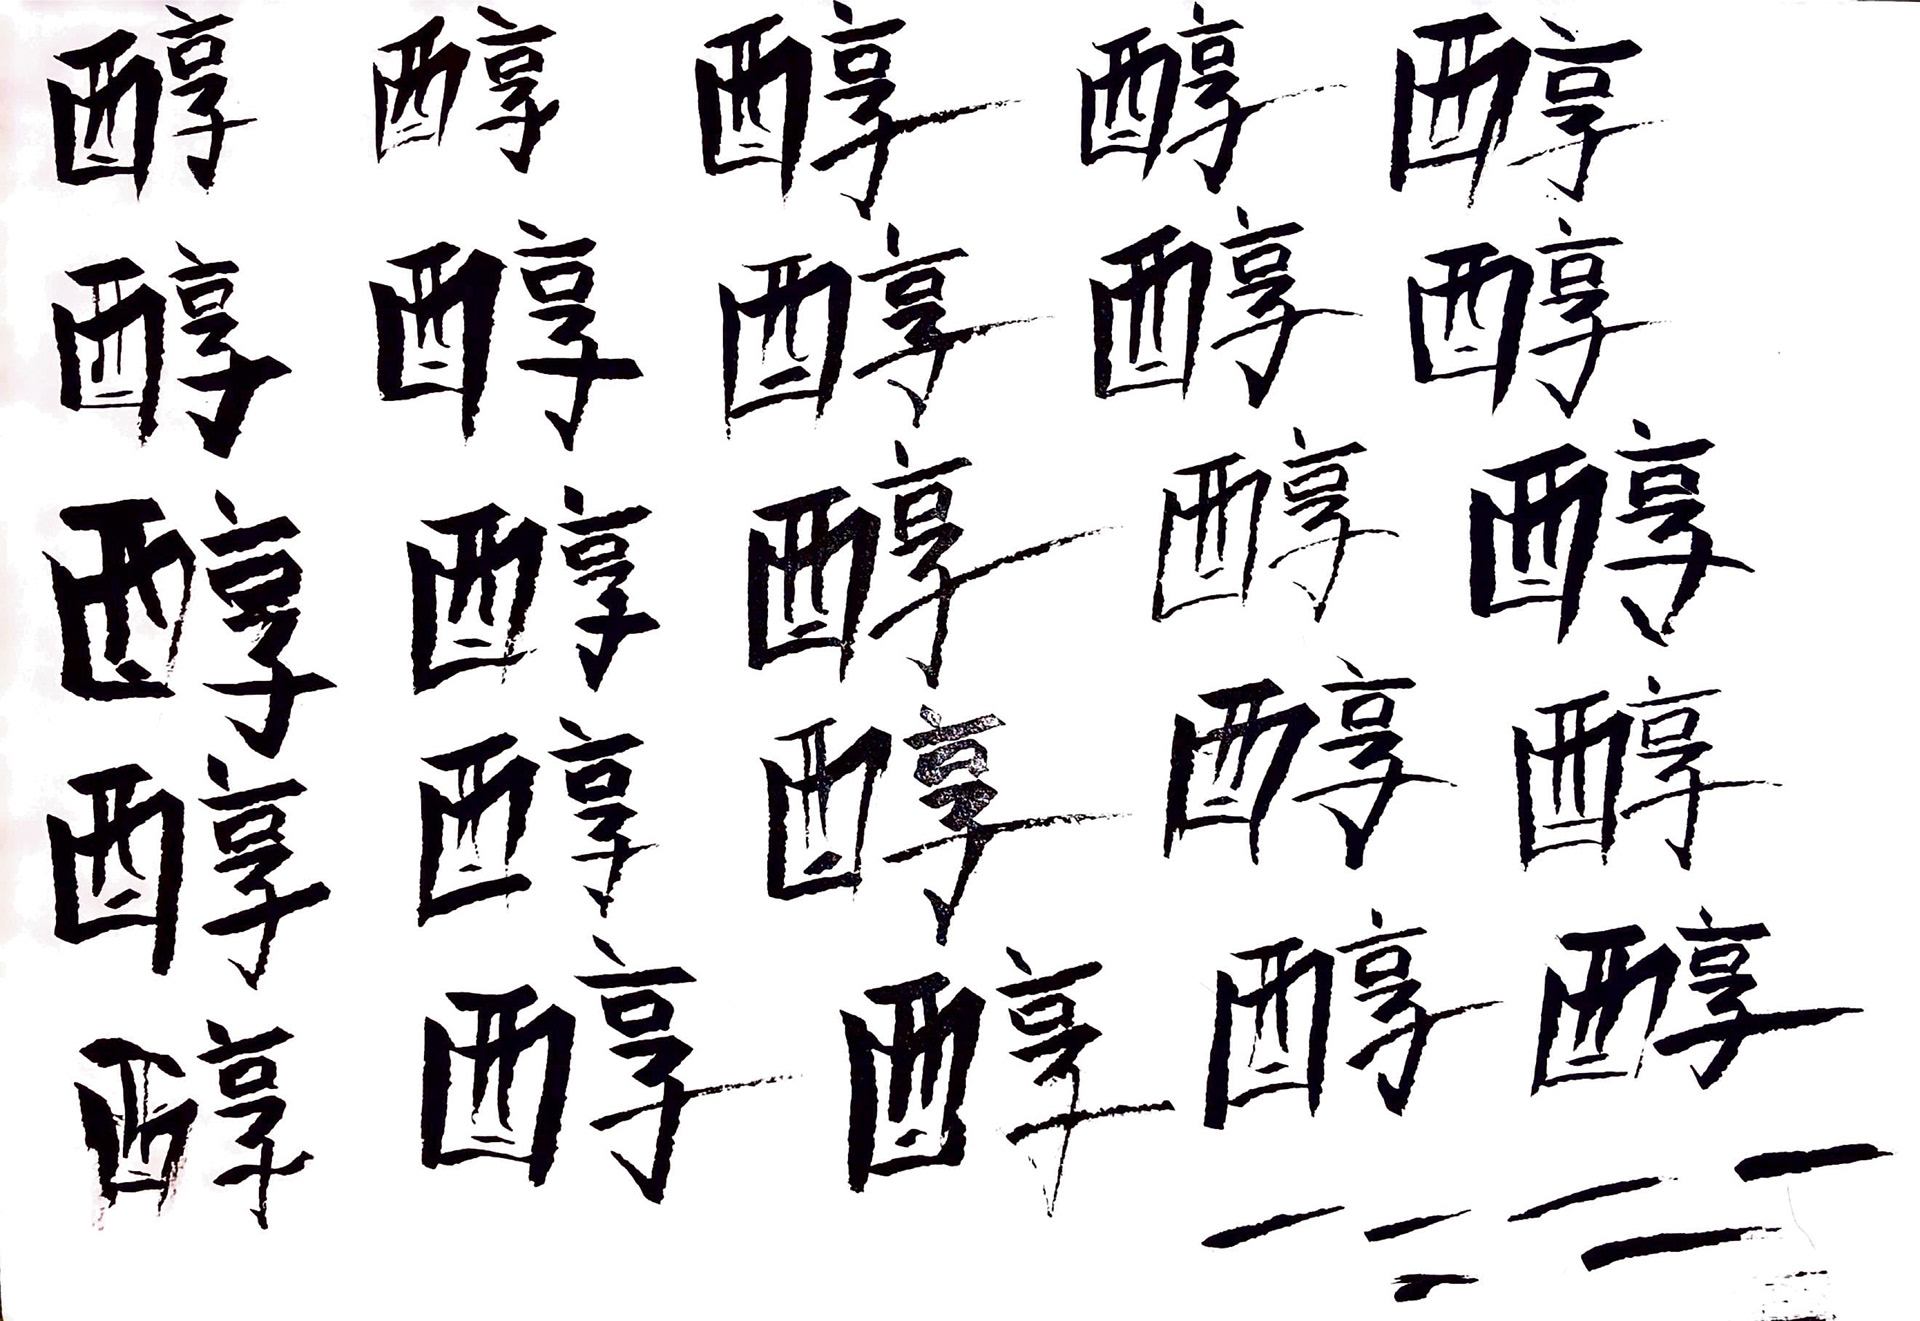 醇 醇 醇 醇 醇
醇 醇 醇 醇 醇
醇 醇 醇 醇 醇
醇 醇 醇 醇 醇
醇 醇 醇 醇 醇